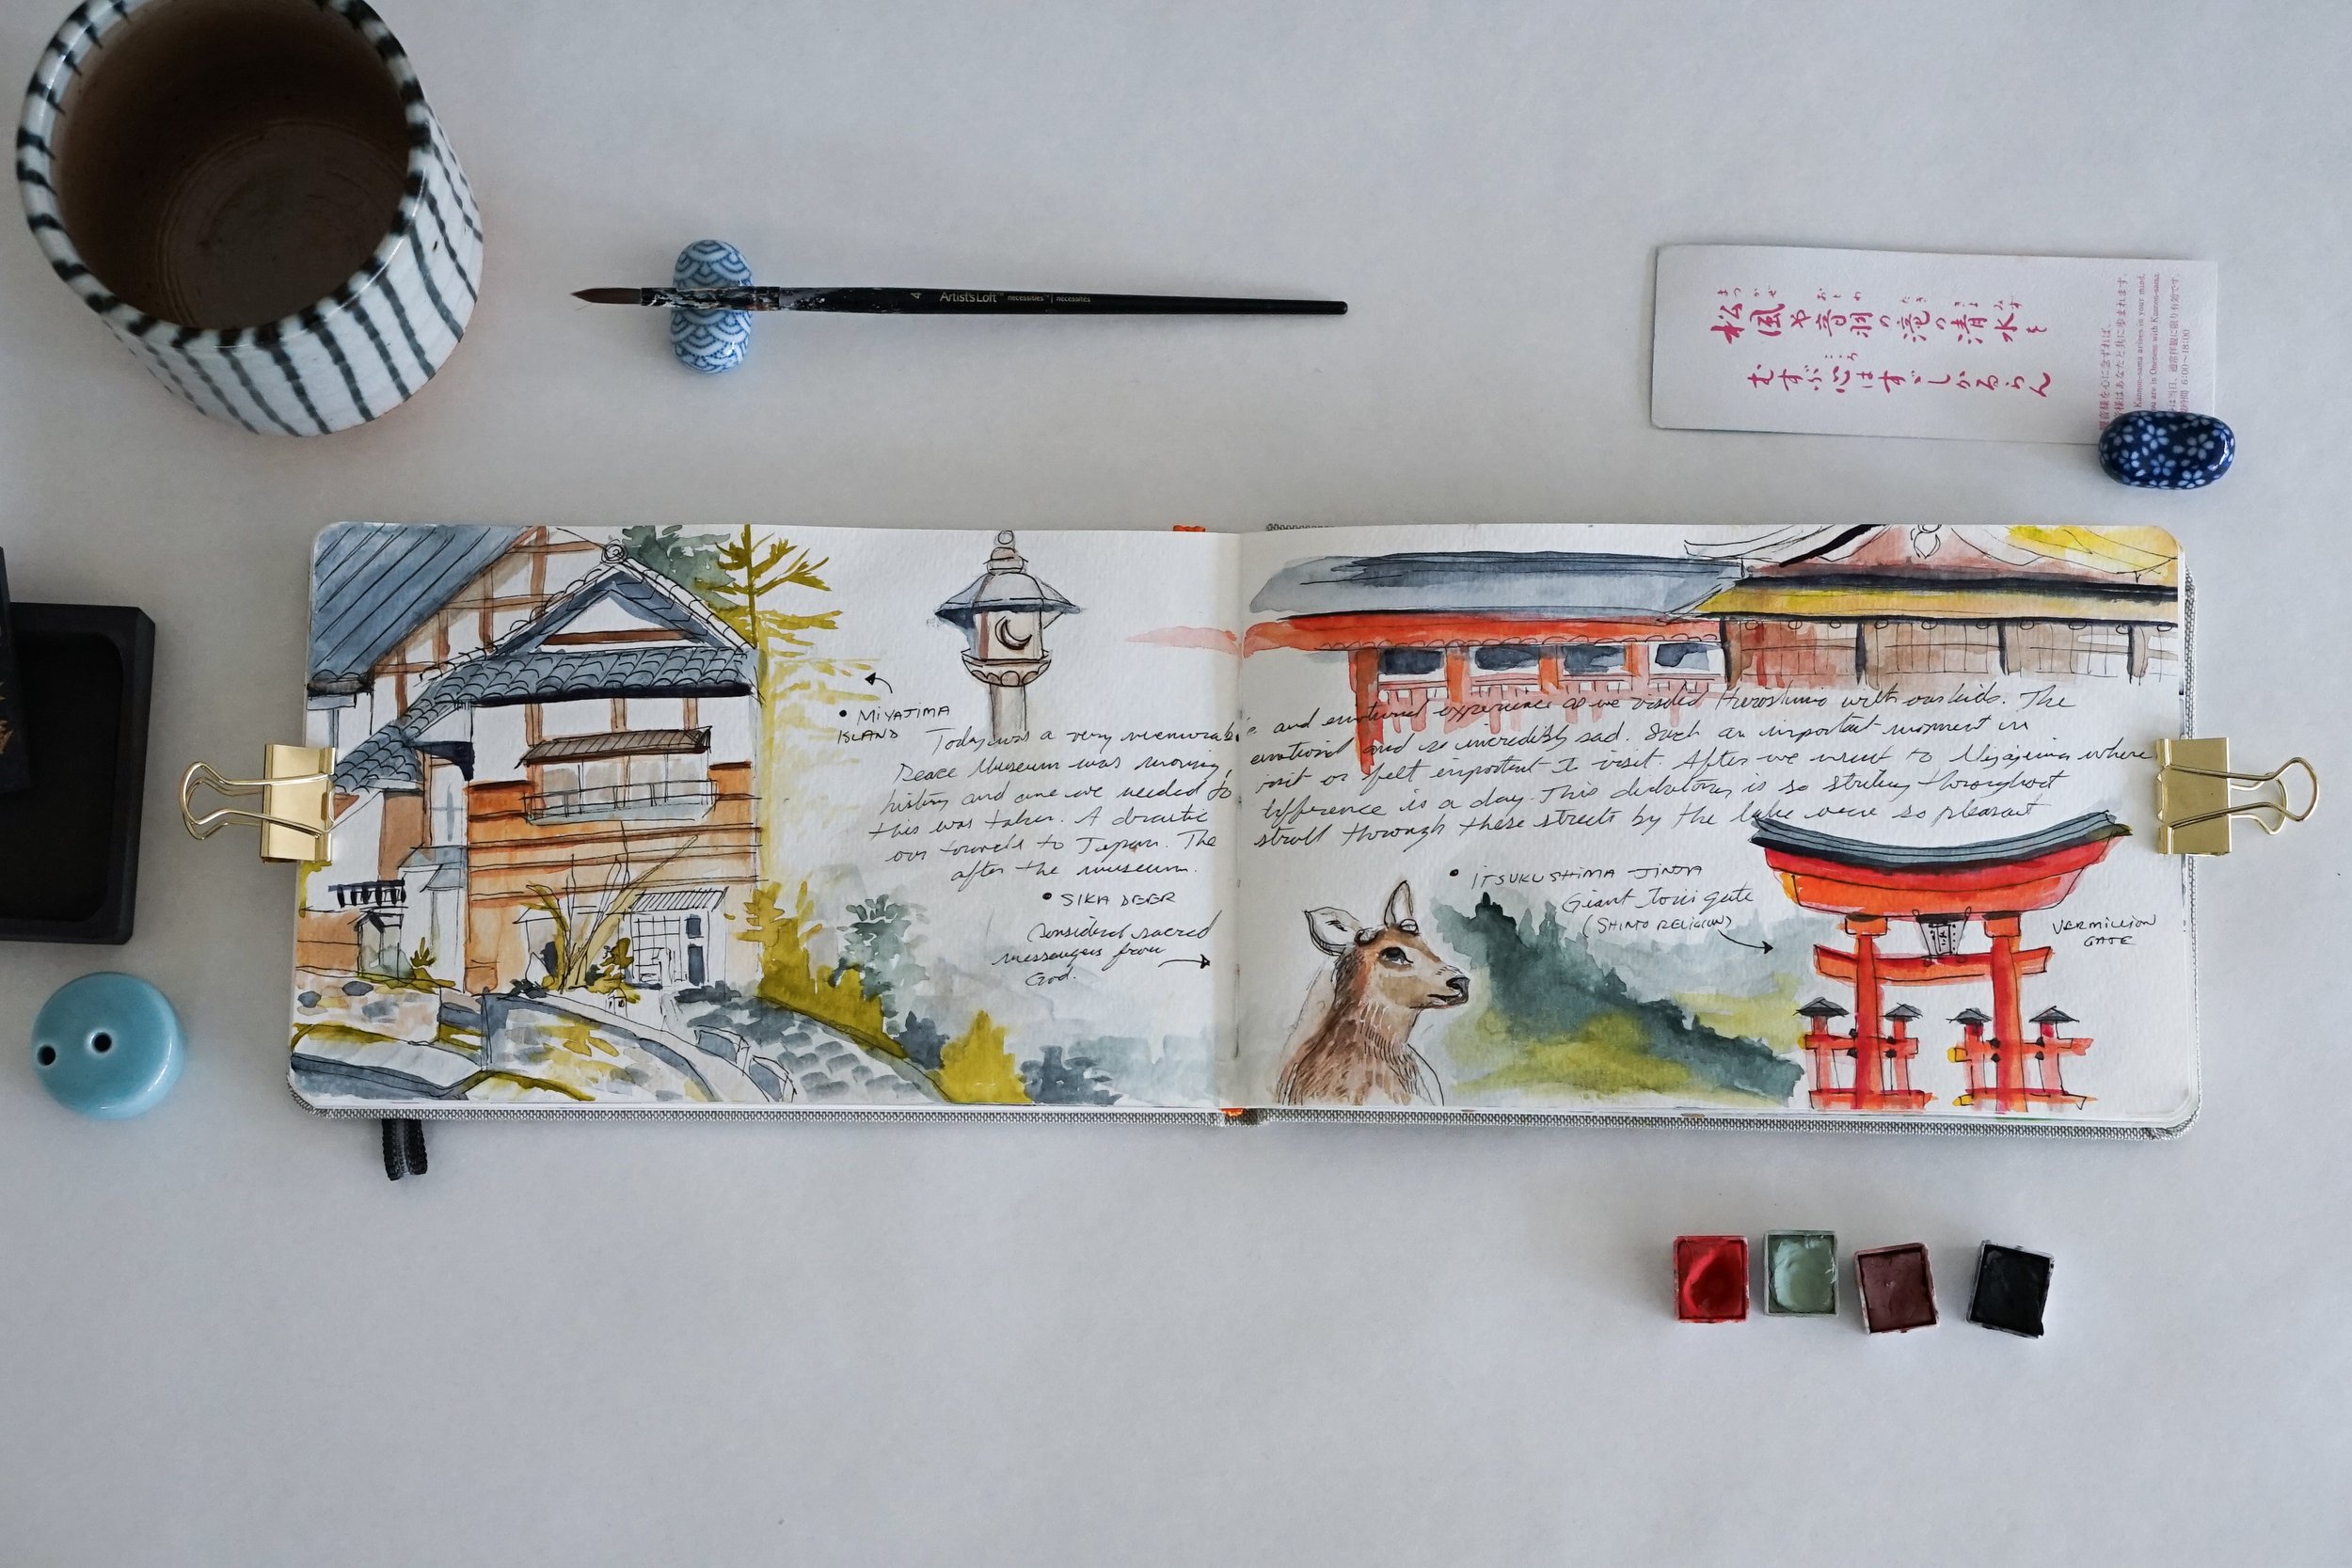 4 Artist's Loft™ necessities™ | nécessités
松風や音羽の滝の清水を
むすぶ心はすゞしかるらん
Kannon-sama arises in your mind,
you are in Oneness with Kannon-sama.
6:00～18:00
• MIYAJIMA
ISLAND
Today was a very memorable and emotional experience as we visited Hiroshima with our kids. The
Peace Museum was moving, emotional and so incredibly sad. Such an important moment in
history and one we needed to visit or felt important to visit. After we went to Miyajima where
this was taken. A drastic difference in a day. This dichotomy is so striking throughout
our travels to Japan. The stroll through these streets by the lake were so pleasant
after the museum.
• SIKA DEER
Considered sacred
messengers from
God.
• ITSUKUSHIMA JINJA
Giant Torii gate
(SHINTO RELIGION)
VERMILLION
GATE